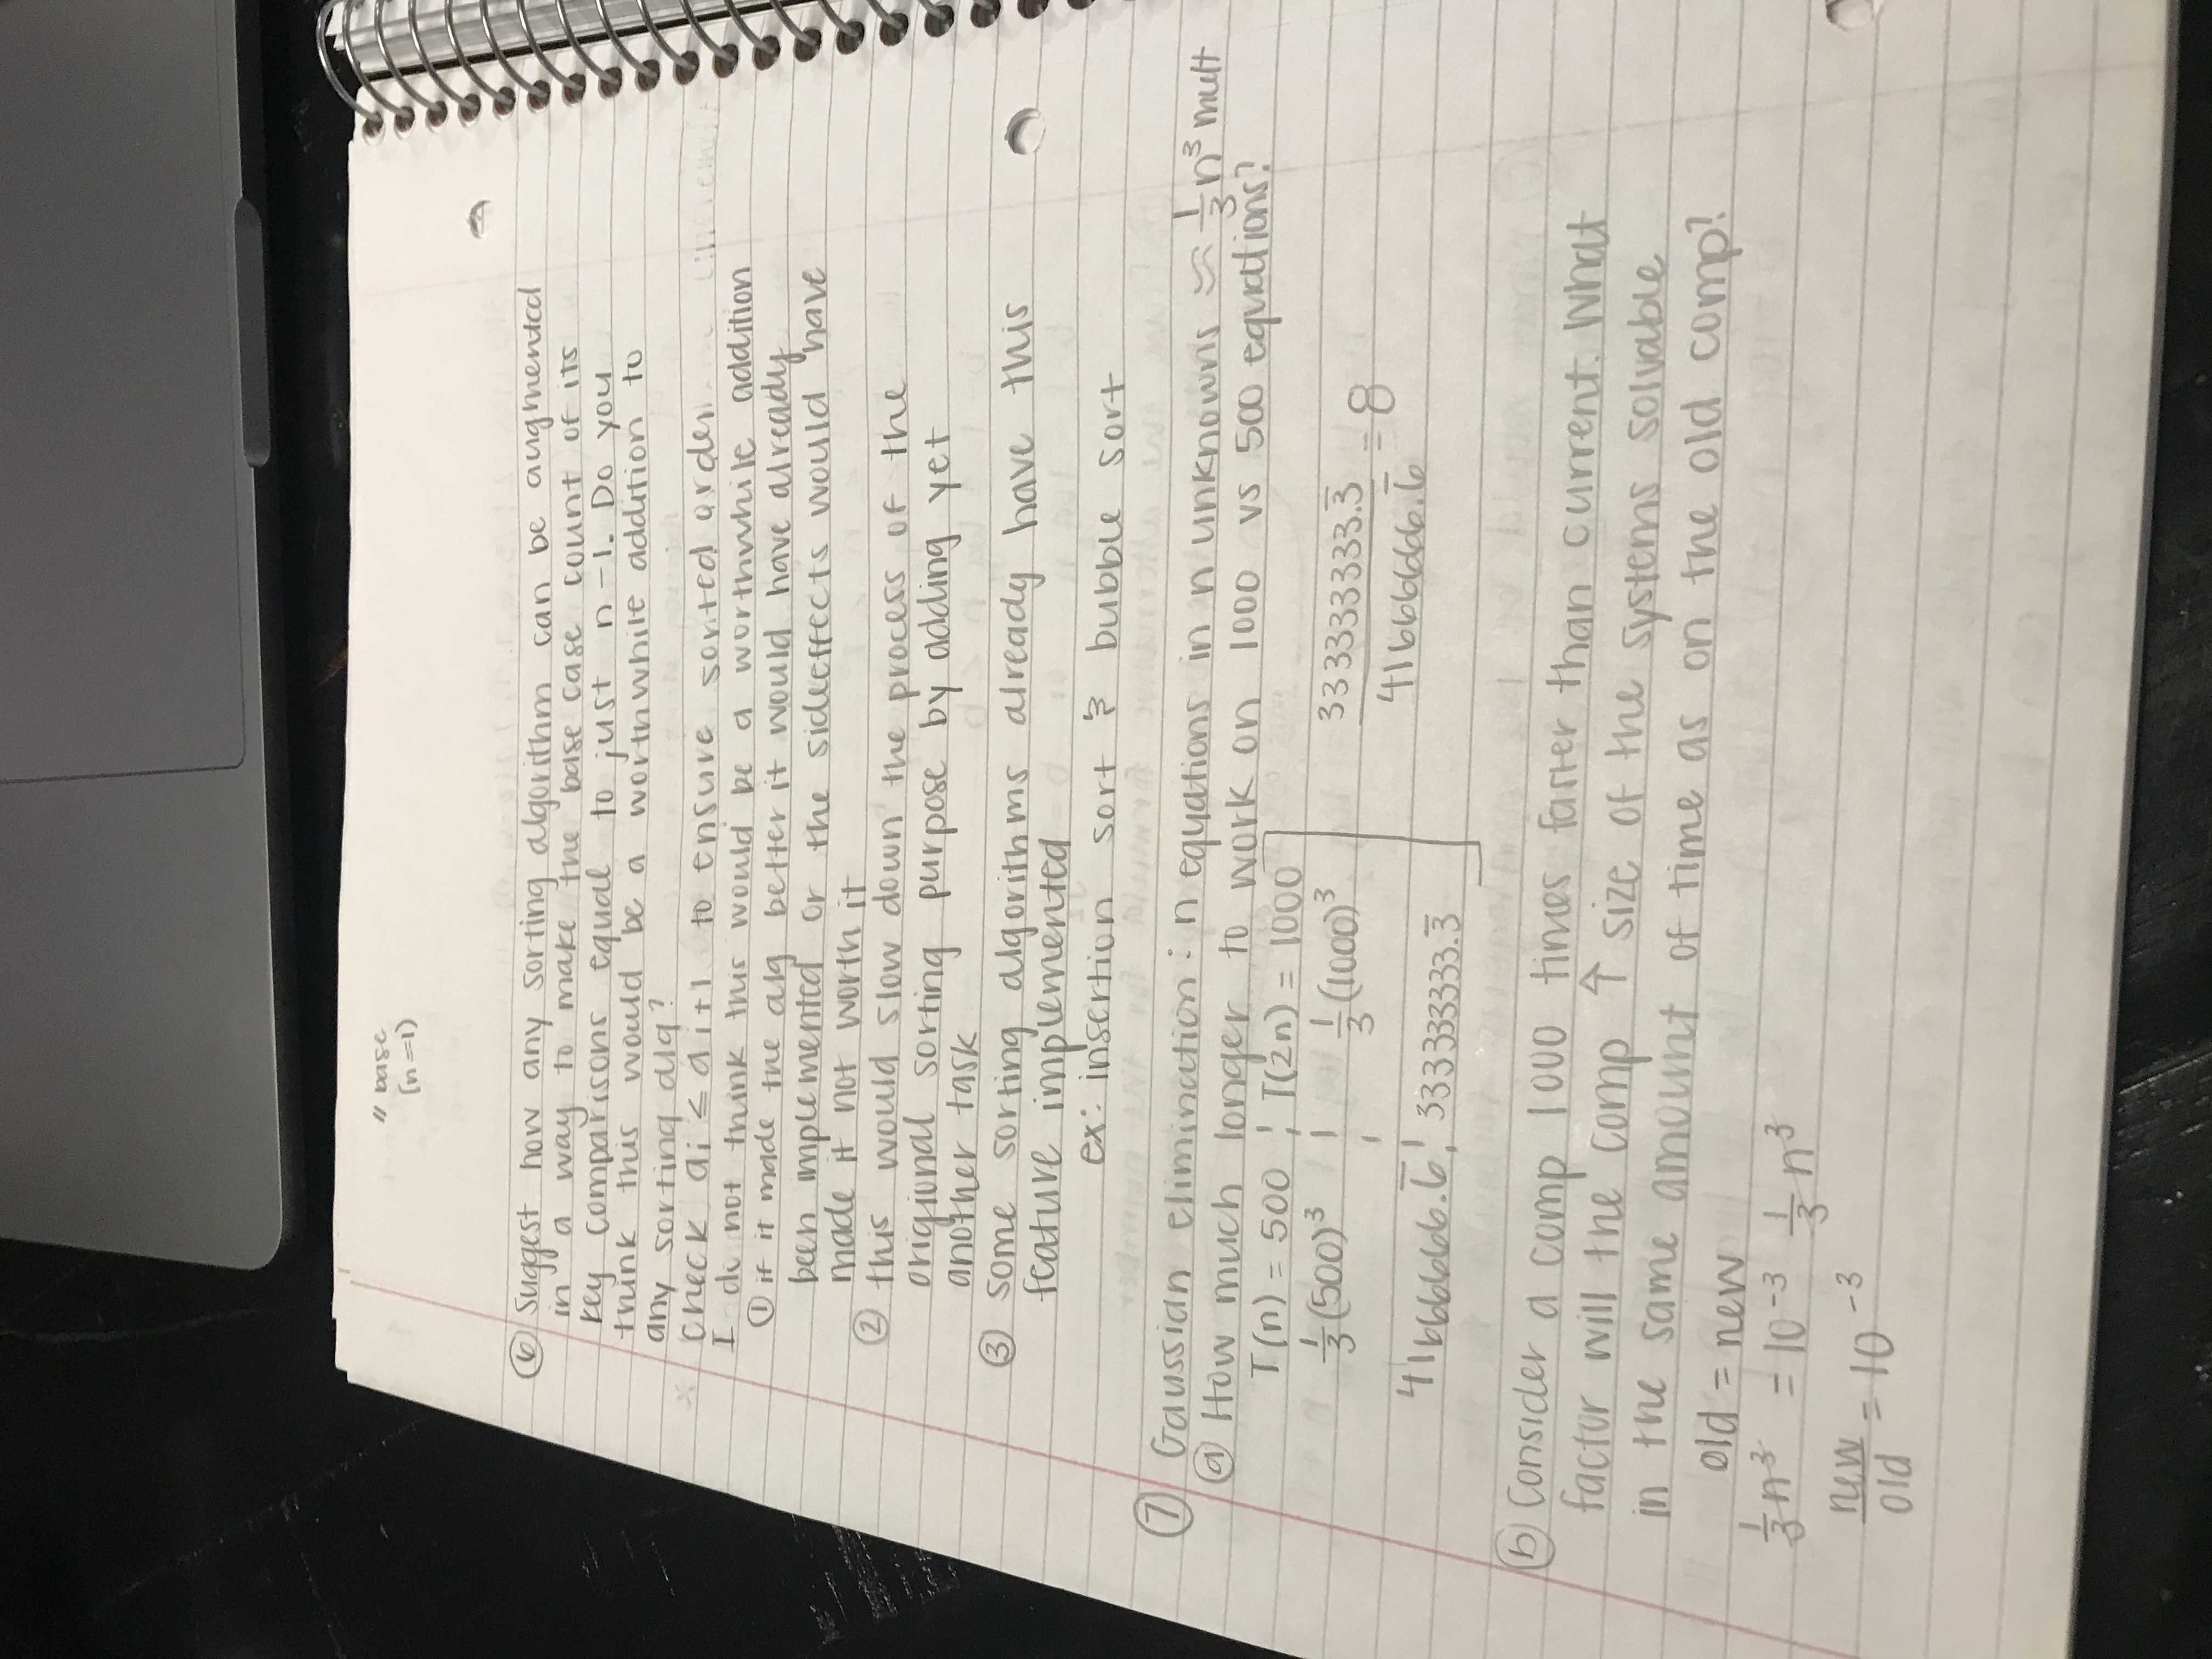 // base
(n=1)
⑥ Suggest how any sorting algorithm can be augmented
in a way to make the base case count of its
key comparisons equal to just n-1. Do you
think this would be a worthwhile addition to
any sorting alg?
check ai ≤ ai+1 to ensure sorted order
I do not think this would be a worthwhile addition
① if it made the alg better it would have already
been implemented or the sideeffects would have
made it not worth it
② this would slow down the process of the
origional sorting purpose by adding yet
another task
③ some sorting algorithms already have this
feature implemented
ex: insertion sort & bubble sort
⑦ Gaussian elimination: n equations in n unknowns ≈ 1/3 n³ mult
ⓐ How much longer to work on 1000 vs 500 equations?
T(n) = 500 ¦ T(2n) = 1000
1/3 (500)³ ¦ 1/3 (1000)³
41666666.6̅ ¦ 333333333.3̅
333333333.3̅ / 41666666.6̅ = 8
ⓑ Consider a comp 1000 times faster than current. What
factor will the comp ↑ size of the systems solvable
in the same amount of time as on the old comp?
old = new
1/3 n³ = 10⁻³ 1/3 n³
new/old = 10⁻³